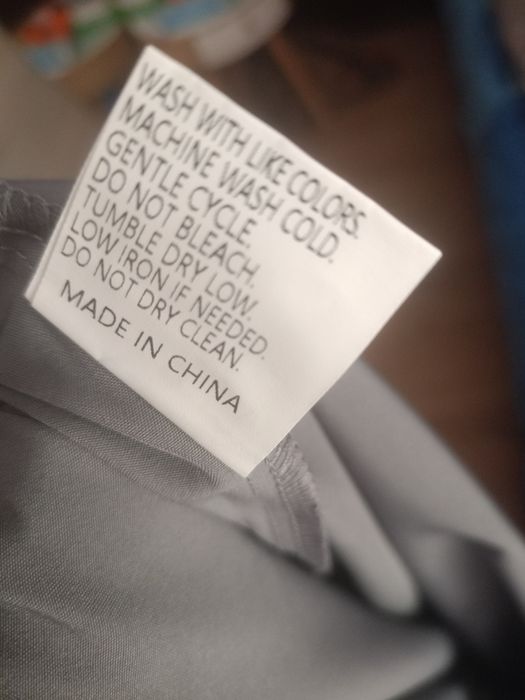 WASH WITH LIKE COLORS.
MACHINE WASH COLD.
GENTLE CYCLE.
DO NOT BLEACH.
TUMBLE DRY LOW.
LOW IRON IF NEEDED.
DO NOT DRY CLEAN.
MADE IN CHINA